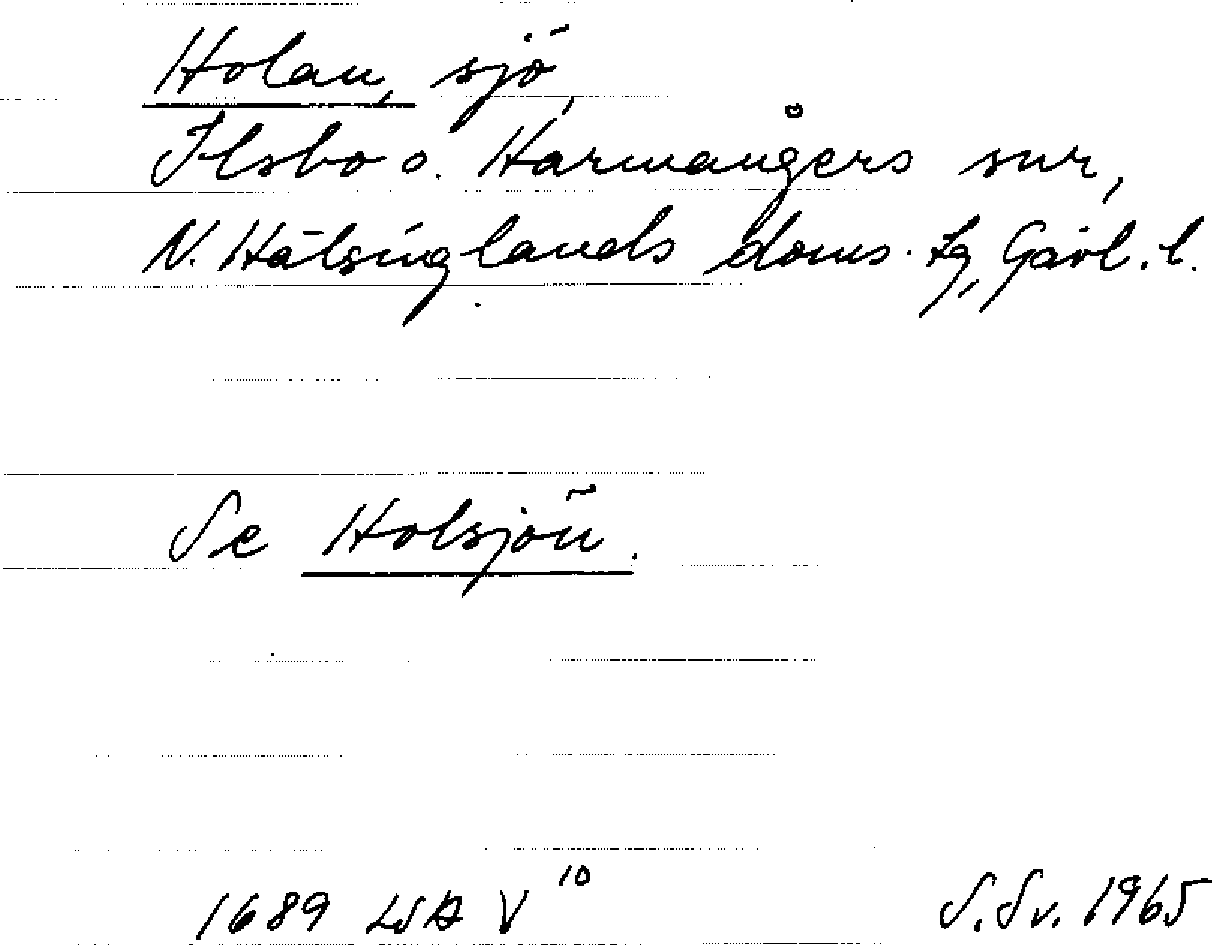 Holan, sjö,
Ilsbo o. Harmångers snr,
N. Hälsinglands doms. tg, Gävl. l.
Se Holsjön.
1689 LSA V 10 S. Sv. 1965